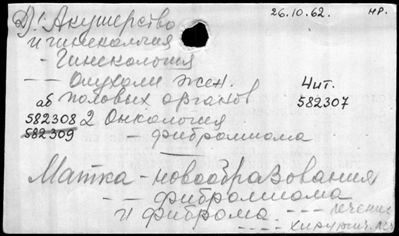 Д! Акушерство 26.10.62. НР.
и гинекология
- Гинекология
-- Опухоли жен.
половых органов Чит.
аб 582307
582308 2 Онкология
582309 - фибромиома
Матка - новообразования
-- фибромиома
и фиброма --- лечение
--- хирургич. леч